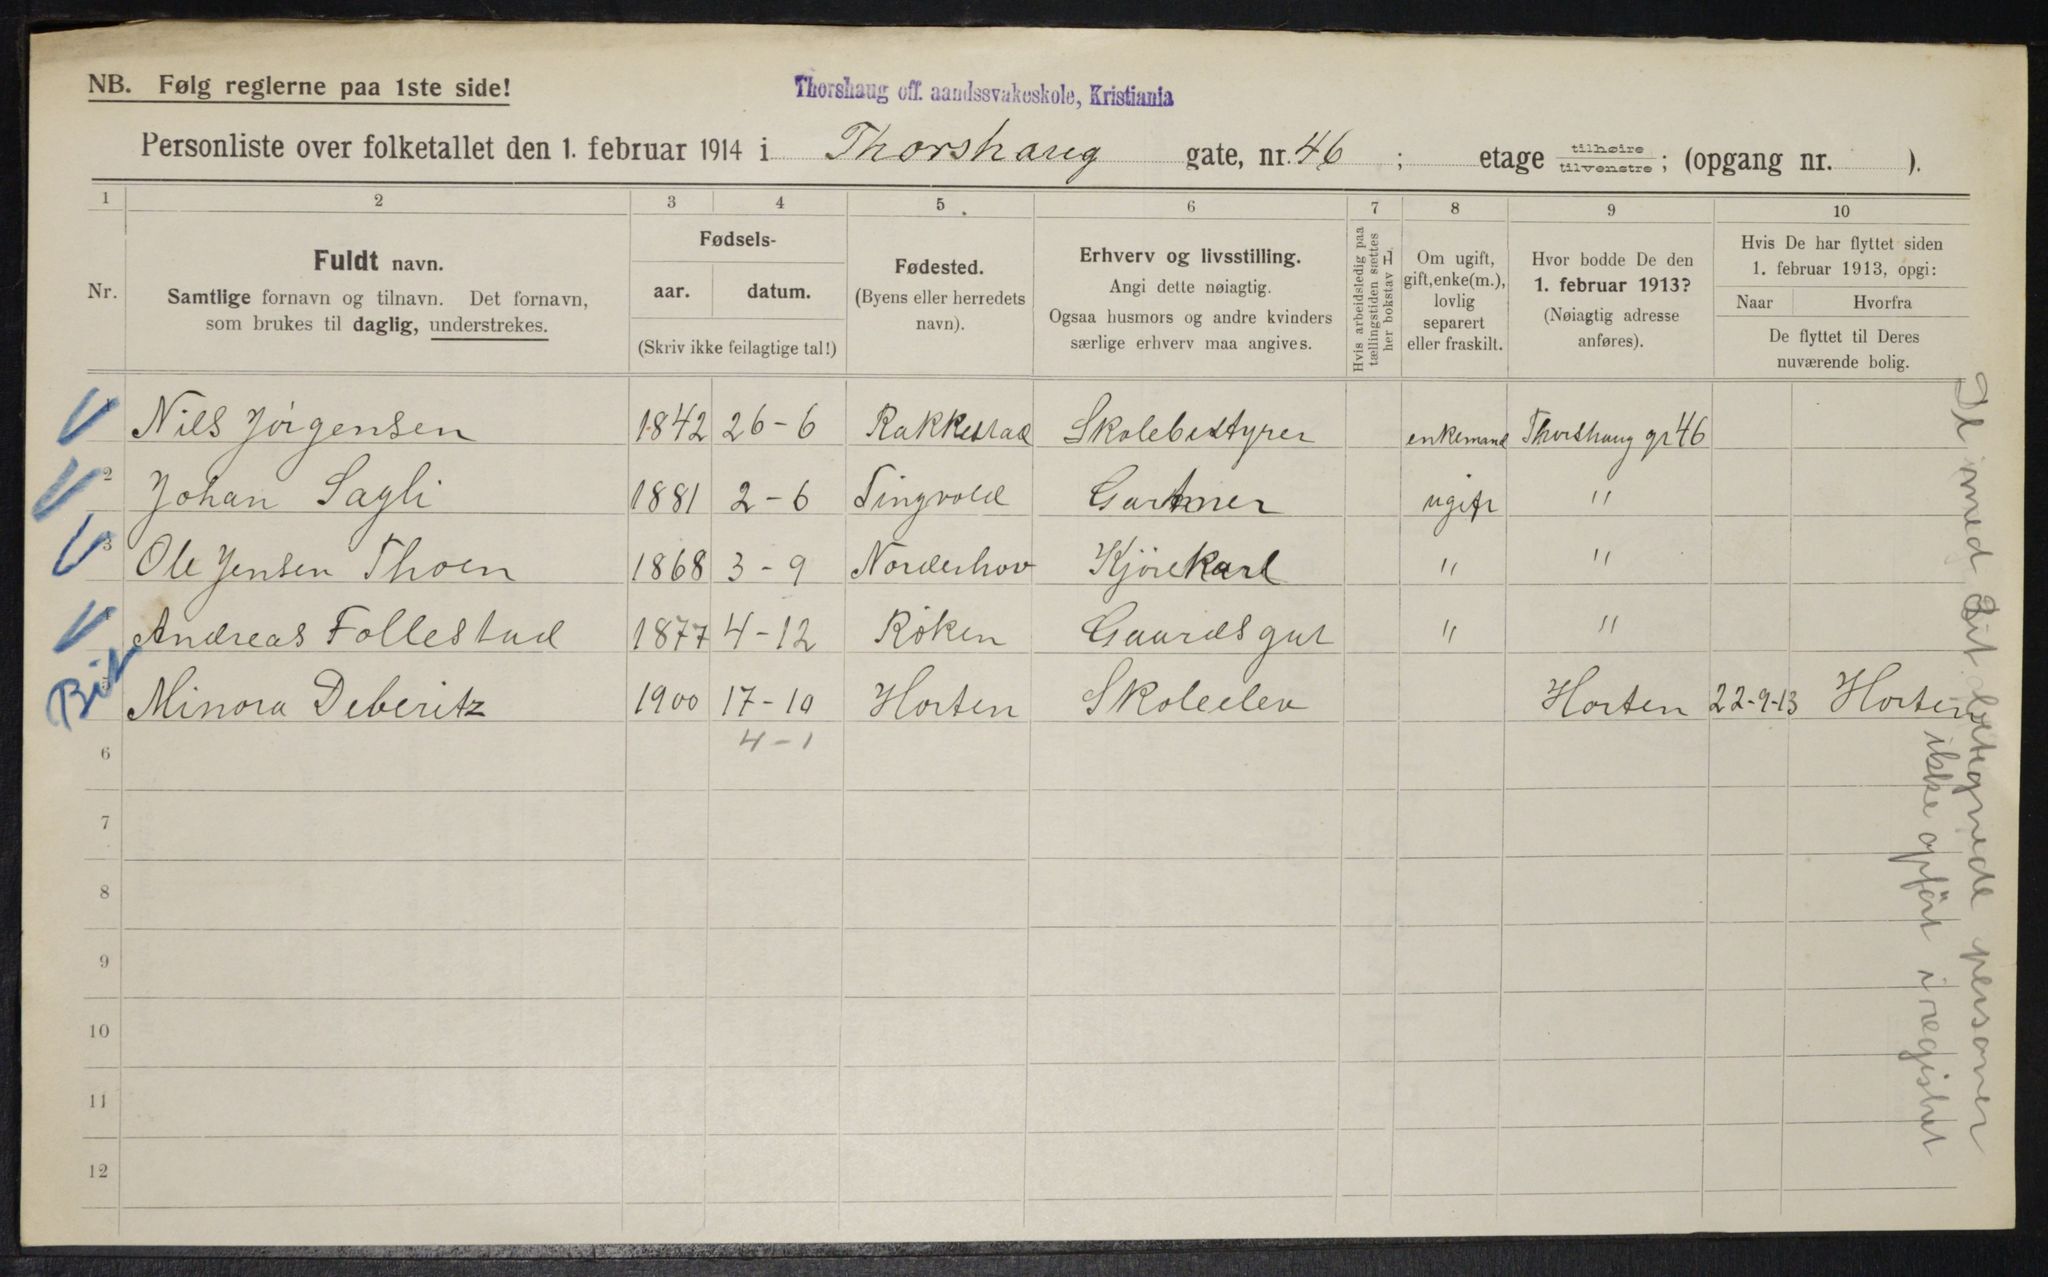 NB. Følg reglerne paa 1ste side!
Thorshaug off. aandssvakeskole, Kristiania
Personliste over folketallet den 1. februar 1914 i Thorshaug gate, nr. 46 ; etage tilhøire tilvenstre; (opgang nr. ).
1 2 3 4 5 6 7 8 9 10
Nr.
Fuldt navn.
Samtlige fornavn og tilnavn. Det fornavn,
som brukes til daglig, understrekes.
Fødsels-
aar. datum.
(Skriv ikke feilagtige tal!)
Fødested.
(Byens eller herredets
navn).
Erhverv og livsstilling.
Angi dette nøiagtig.
Ogsaa husmors og andre kvinders
særlige erhverv maa angives.
Hvis arbeidsledig paa
tællingstiden sættes
her bokstav L.
Om ugift,
gift, enke(m.),
lovlig
separert
eller fraskilt.
Hvor bodde De den
1. februar 1913?
(Nøiagtig adresse
anføres).
Hvis De har flyttet siden
1. februar 1913, opgi:
Naar Hvorfra
De flyttet til Deres
nuværende bolig.
Nils Jörgensen 1842 26-6 Rakkestad Skolebestyrer enkemand Thorshaug gt 46
2 Johan Sagli 1881 2-6 Tingvold Gartner ugift "
3 Ole Jensen Thoen 1868 3-9 Norderhov Kjörekarl " "
Andreas Follestad 1877 4-12 Röken Gaardsgut " "
5 Minora Deberitz 1900 17-10 Horten Skoleelev Horten 22-9-13 Horten
4-1
6
7
8
9
10
11
12
De med Bit betegnede personer
ikke opført i registret